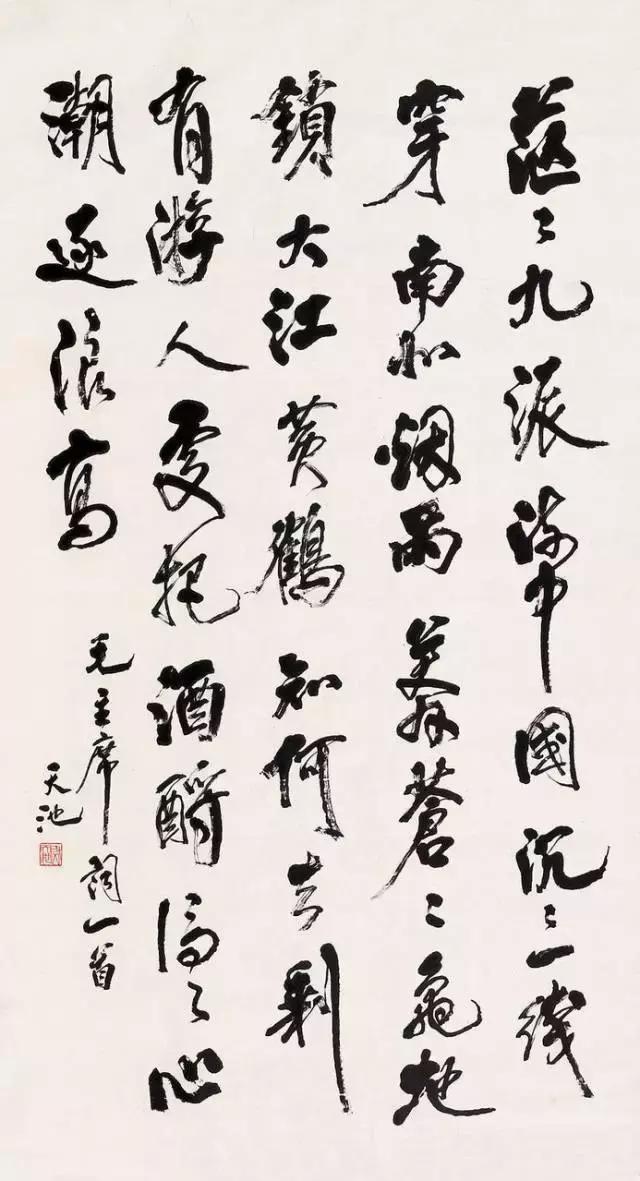 茫〻九派流中國沉〻一綫
穿南北烟雨莽蒼〻龜蛇
鎖大江黄鶴知何去剩
有游人處把酒酹滔〻心
潮逐浪高
毛主席詞一首
天池